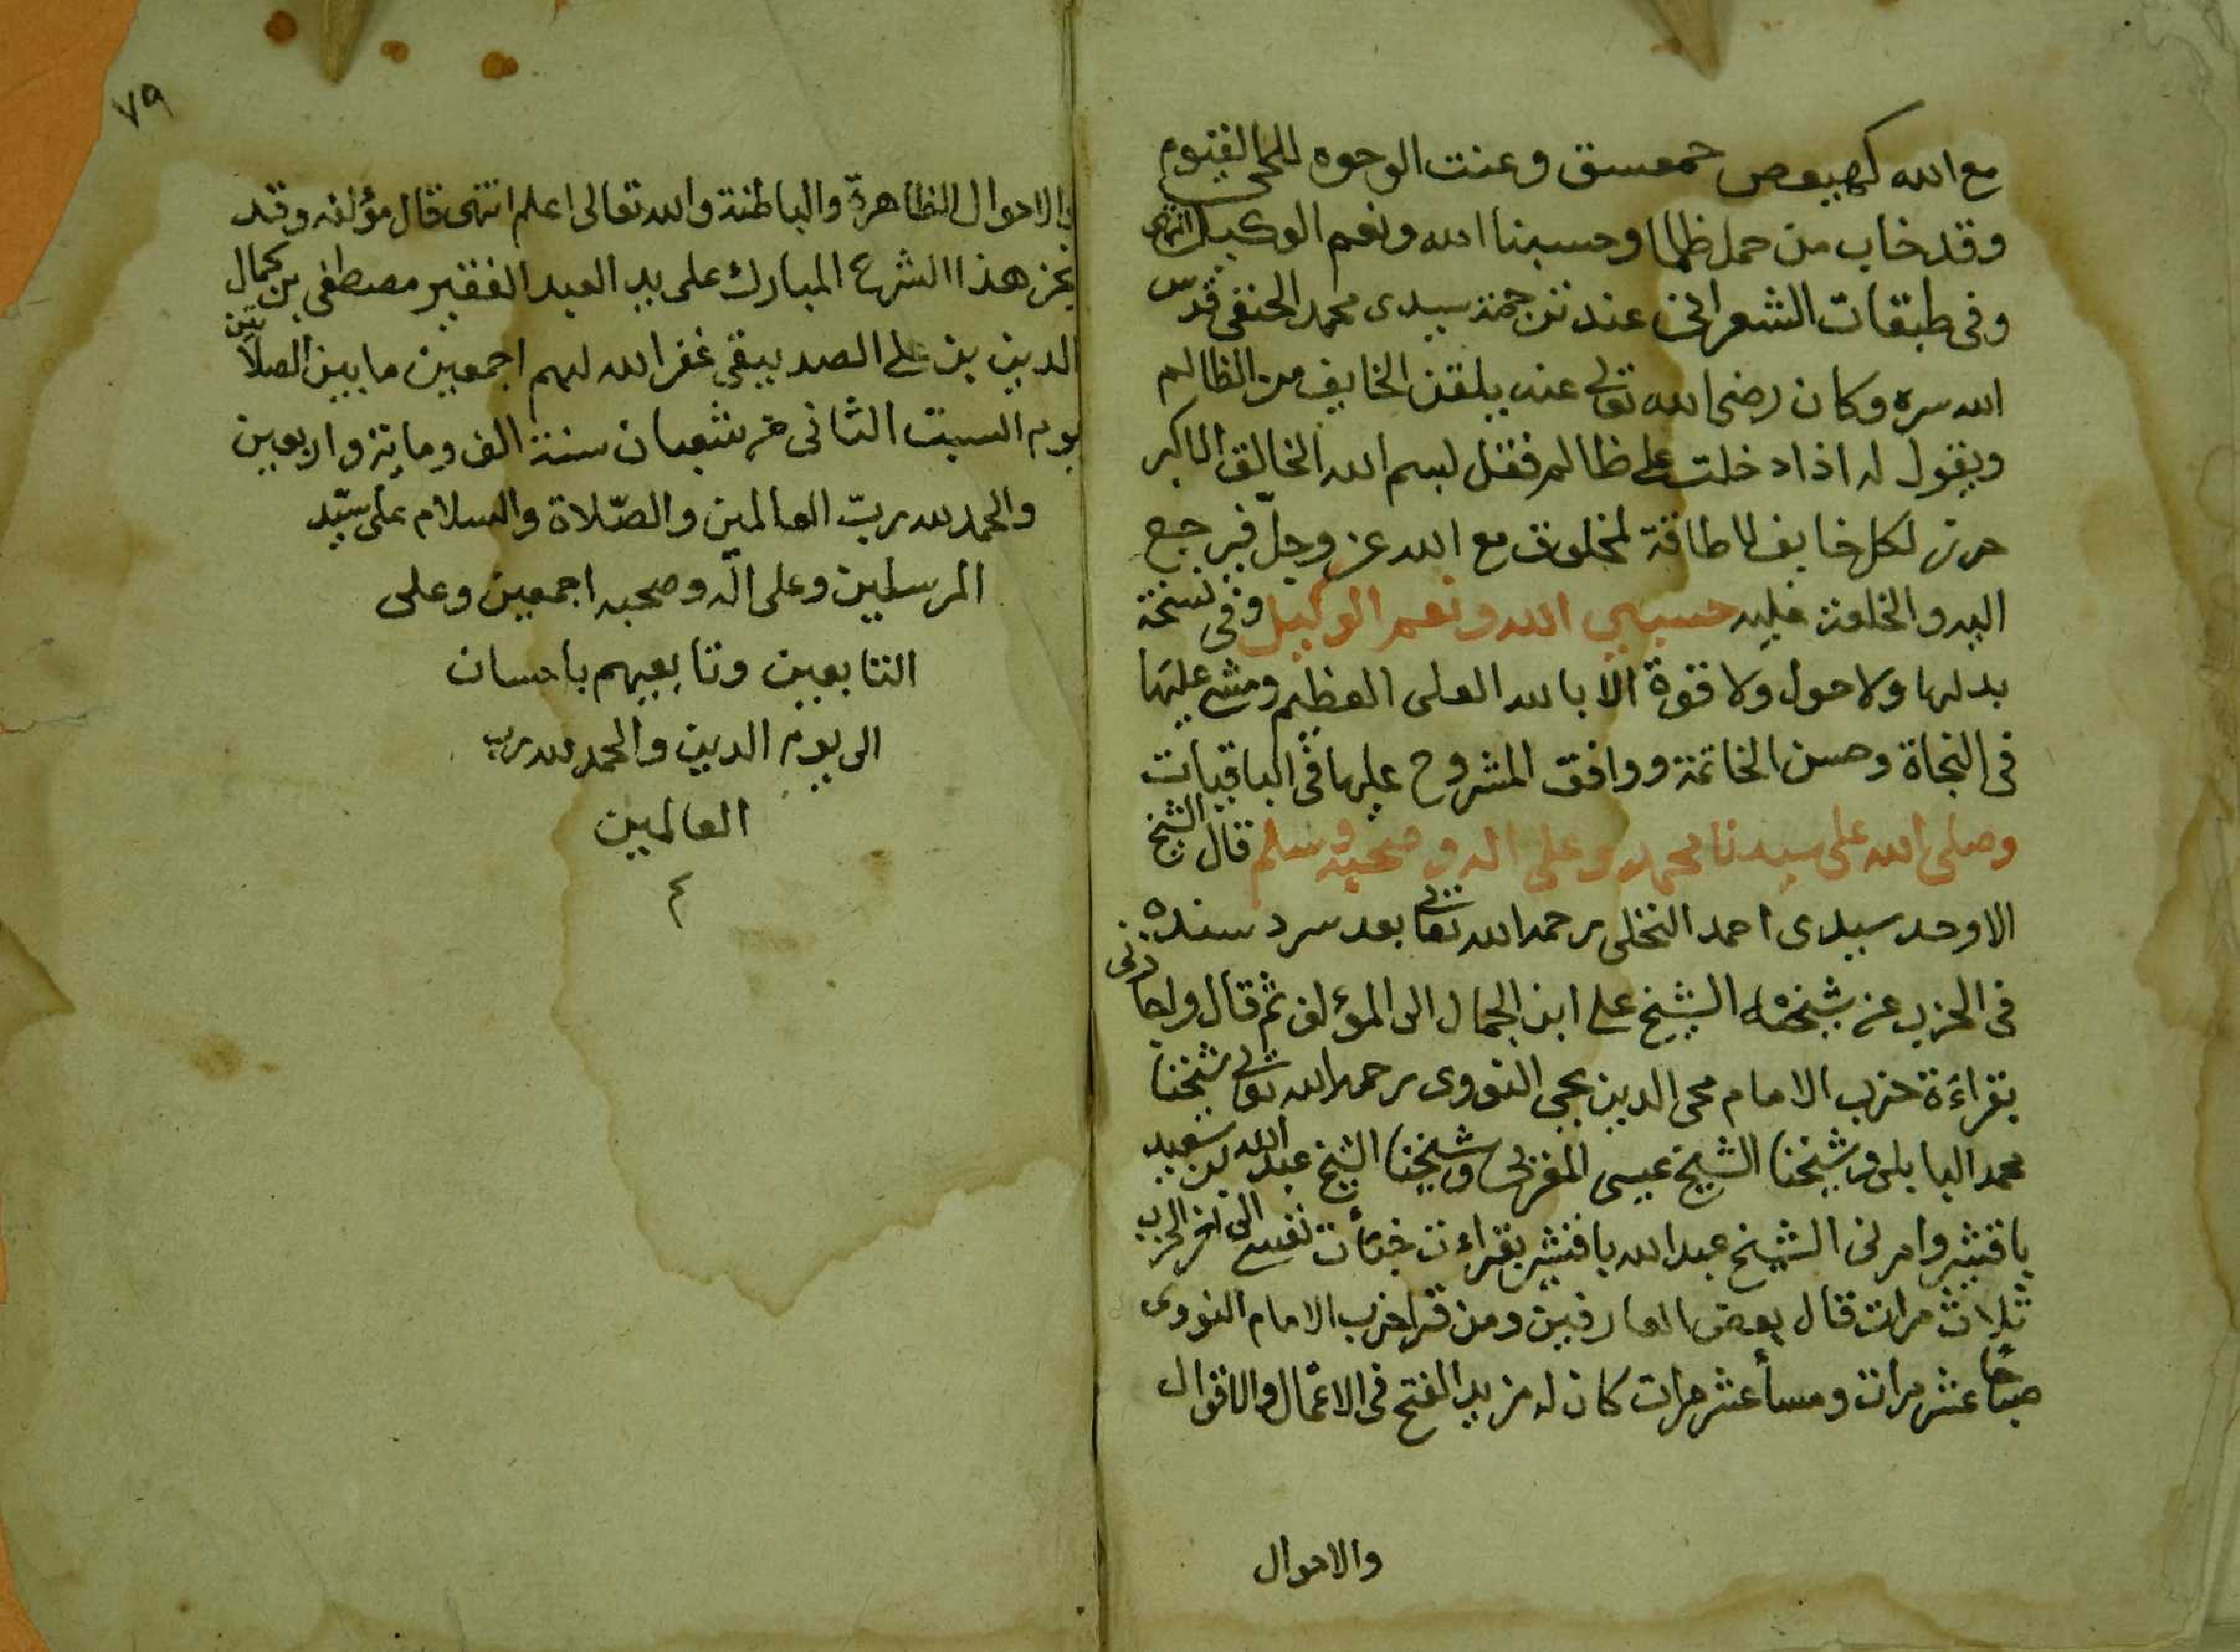 مع الله كهيعص حمعسق وعنت الوجوه للحي القيوم
وقد خاب من حمل ظلما وحسبنا الله ونعم الوكيل انتهى
وفى طبقات الشعرانى عند ترجمة سيدى محمد الحنفى قدس
الله سره وكان رضى الله تعالى عنه يلقن الخايف من الظالم
ويقول له اذا دخلت على ظالم فقل بسم الله الخالق الاكبر
حرز لكل خايف لا طاقة لمخلوق مع الله عز وجل فيرجع
اليه والخلعة عليه حسبي الله ونعم الوكيل وفى نسخة
بدلها ولا حول ولا قوة الا بالله العلى العظيم ومشى عليها
فى النجاة وحسن الخاتمة ووافق المشروح عليها فى الباقيات
وصلى الله على سيدنا محمد وعلى اله وصحبه وسلم قال الشيخ
الاوحد سيدى احمد النخلى رحمه الله تعالى بعد سرد سنده
فى الحزب عن شيخه الشيخ على ابن الجمال الى المؤلف ثم قال واجازنى
بقراءة حزب الامام محى الدين يحيى النووى رحمه الله تعالى شيخنا
محمد البابلى وشيخنا الشيخ عيسى المغربى وشيخنا الشيخ عبد الله بن سعيد
باقشير وامرنى الشيخ عبد الله باقشير بقراءت خبأت نفسى الى اخر الحزب
ثلاث مرات قال بعض العارفين ومن قرا حزب الامام النووى
صباحا عشر مرات ومسأ عشر مرات كان له مزيد الفتح فى الاعمال والاقوال
والاحوال
٧٩
والاحوال الظاهرة والباطنة والله تعالى اعلم انتهى قال مؤلفه وقد
نجز هذا الشرح المبارك على يد العبد الفقير مصطفى بن كمال
الدين بن على الصديقى غفر الله لهم اجمعين ما بين الصلاتين
يوم السبت الثانى من شعبان سنة الف وماية واربعين
والحمد لله رب العالمين والصلاة والسلام على سيد
المرسلين وعلى اله وصحبه اجمعين وعلى
التابعين وتابعيهم باحسان
الى يوم الدين والحمد لله رب
العالمين
م